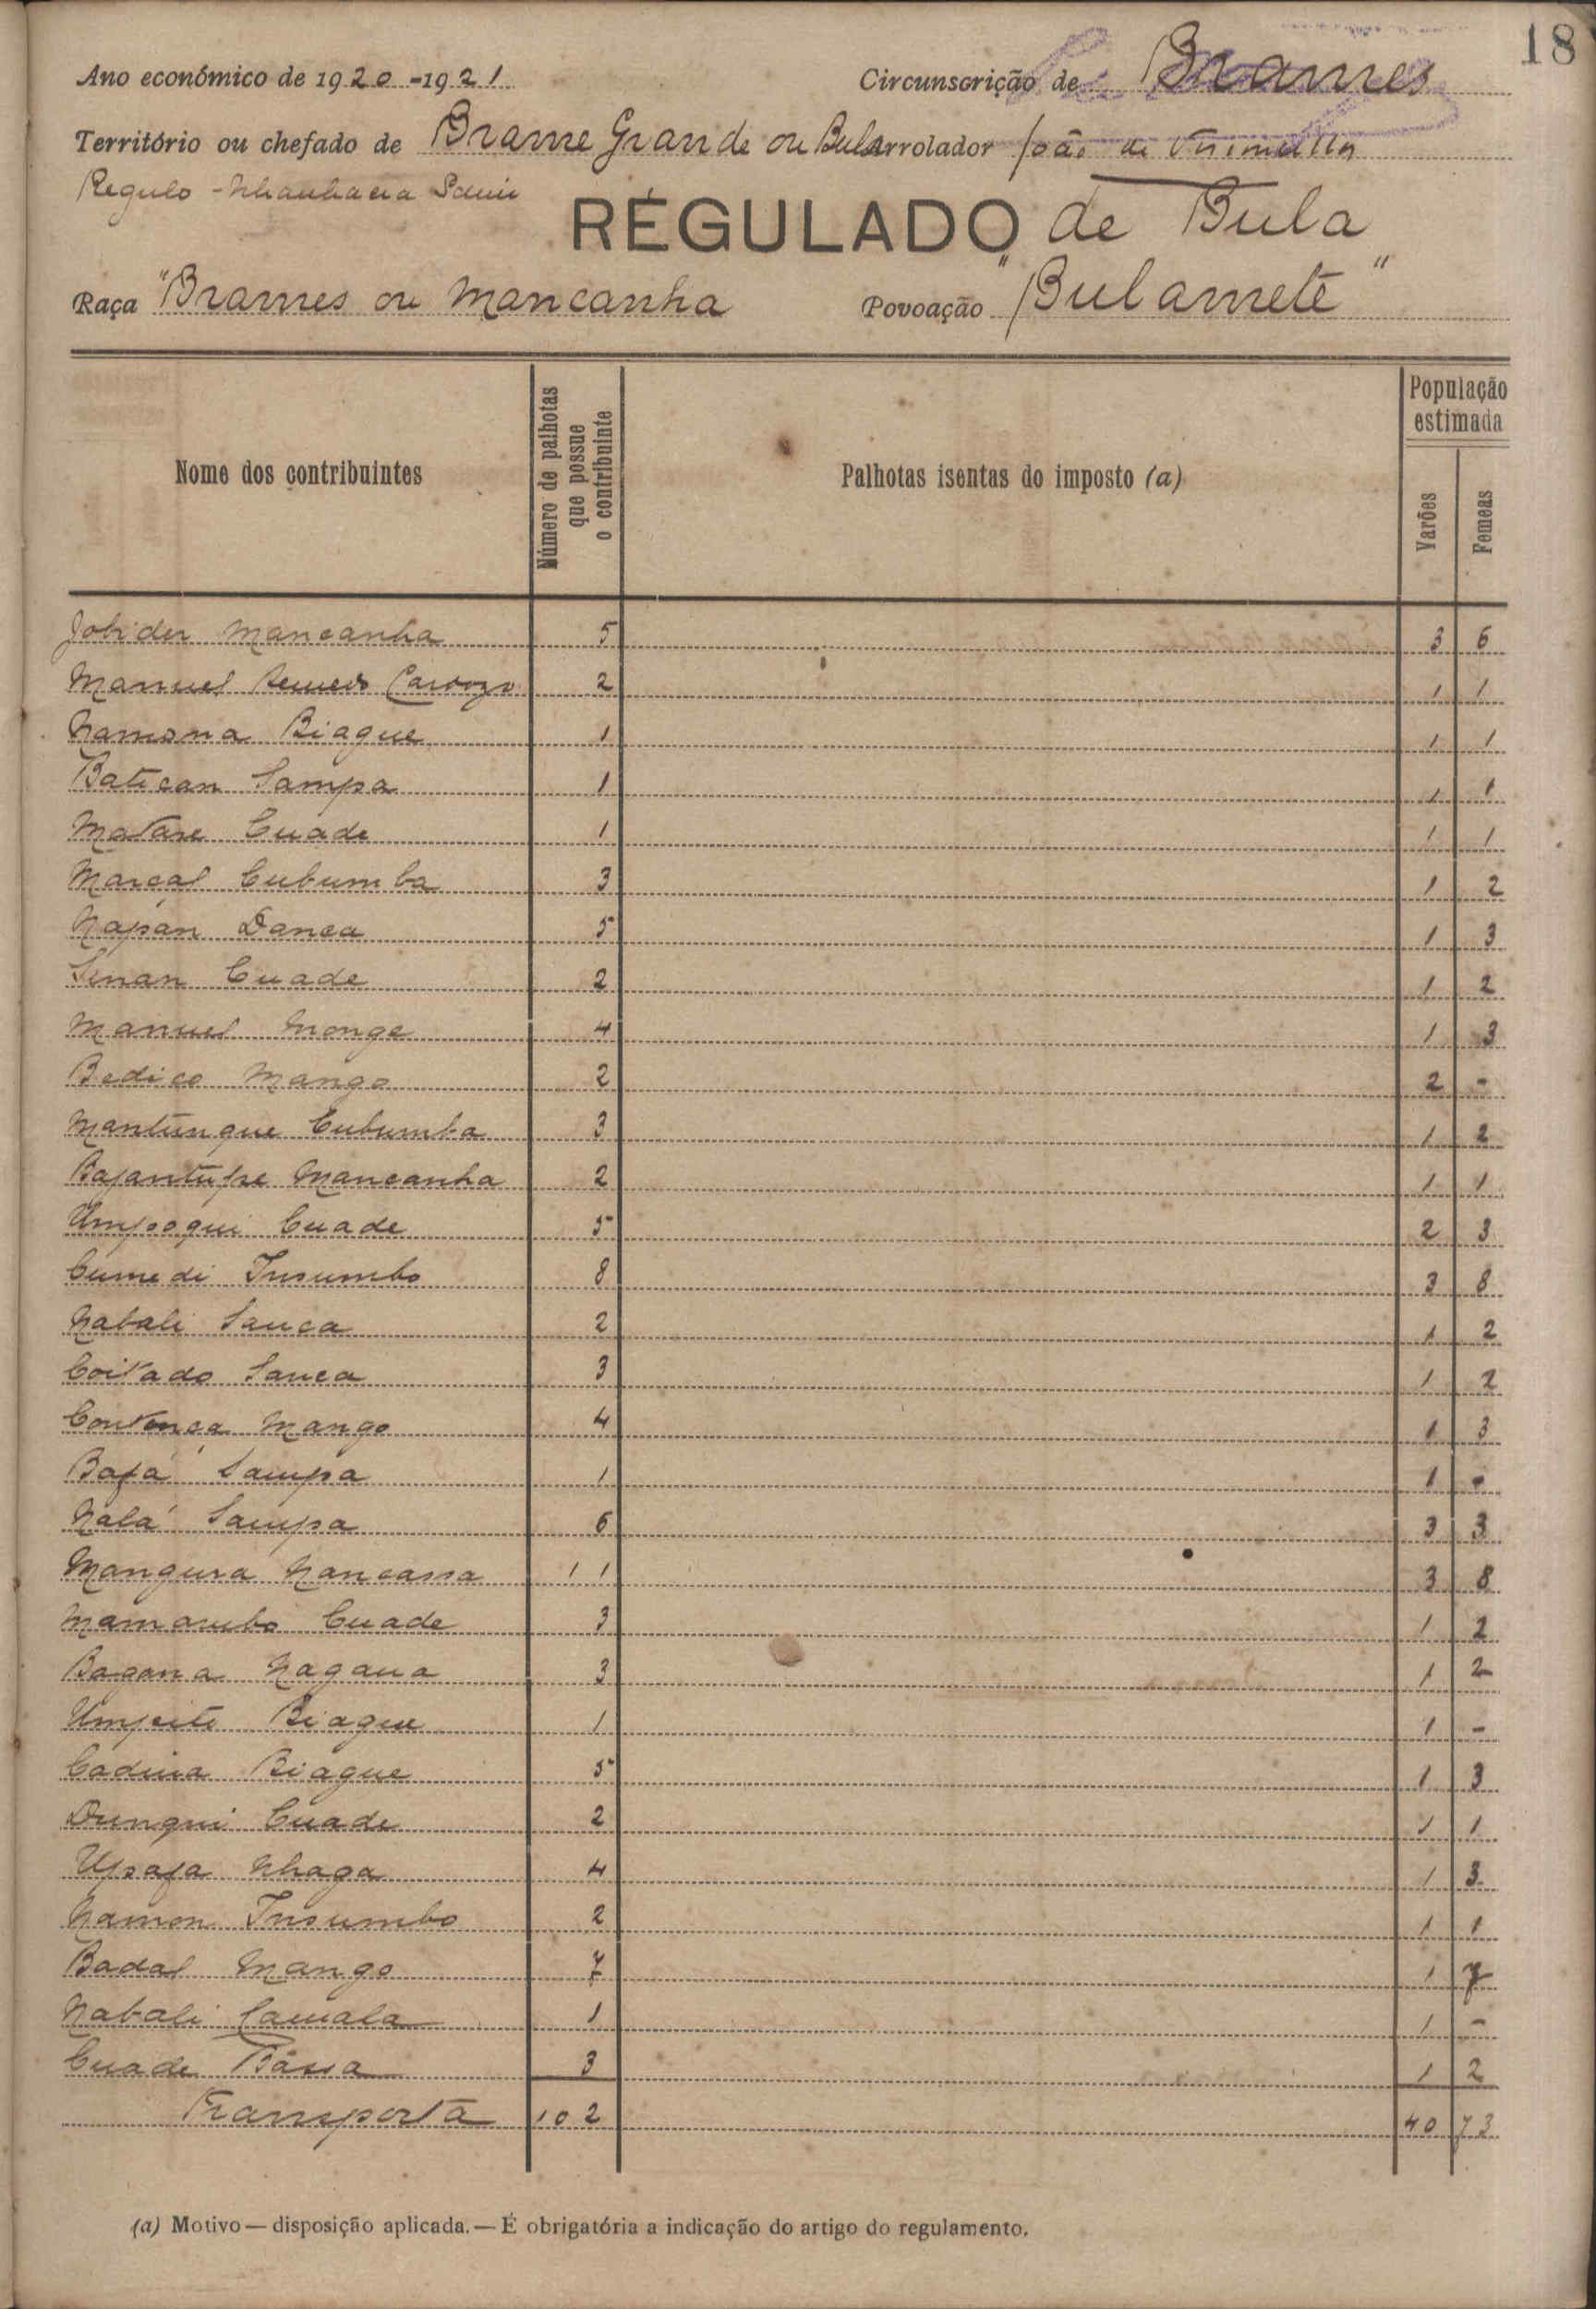 18
Ano económico de 1920-1921 Circunscrição de Brames
Território ou chefado de Brame Grande ou Bula Arrolador João de
Regulo - 
REGULADO de Bula
Raça "Brames ou Mancanha" Povoação "Bulamete"
Nome dos contribuintes Número de palhotas que possue o contribuinte Palhotas isentas do imposto (a) População estimada Varões Femeas
Mancanha 5 3 6
Manuel 2 1 1
Namona Biague 1 1 1
Batican Sampa 1 1 1
Matare Cuade 1 1 1
Marcal Cubumba 3 1 2
Napán Danca 5 1 3
Sinan Cuade 2 1 2
Manuel Monge 4 1 3
Bedico Mango 2 2 -
Mantunque Cubumba 3 1 2
Bajantupe Mancanha 2 1 1
Umpoqui Cuade 5 2 3
Cumedi Insumbo 8 3 8
Nabali Sanca 2 1 2
Coitado Sanca 3 1 2
Mango 4 1 3
Bafá Sampa 1 1 -
Nalá Sampa 6 3 3
Mangura Nancassa 11 3 8
Mamambo Cuade 3 1 2
Bagana Nagana 3 1 2
Umpeite Biague 1 1 -
Cadina Biague 5 1 3
Dunqui Cuade 2 1 1
Upafa Nhaga 4 1 3
Namon Insumbo 2 1 1
Badal Mango 7 1 7
Nabali Camala 1 1 -
Cuade Bássa 3 1 2
Transporta 102 40 73
(a) Motivo — disposição aplicada. — É obrigatória a indicação do artigo do regulamento.